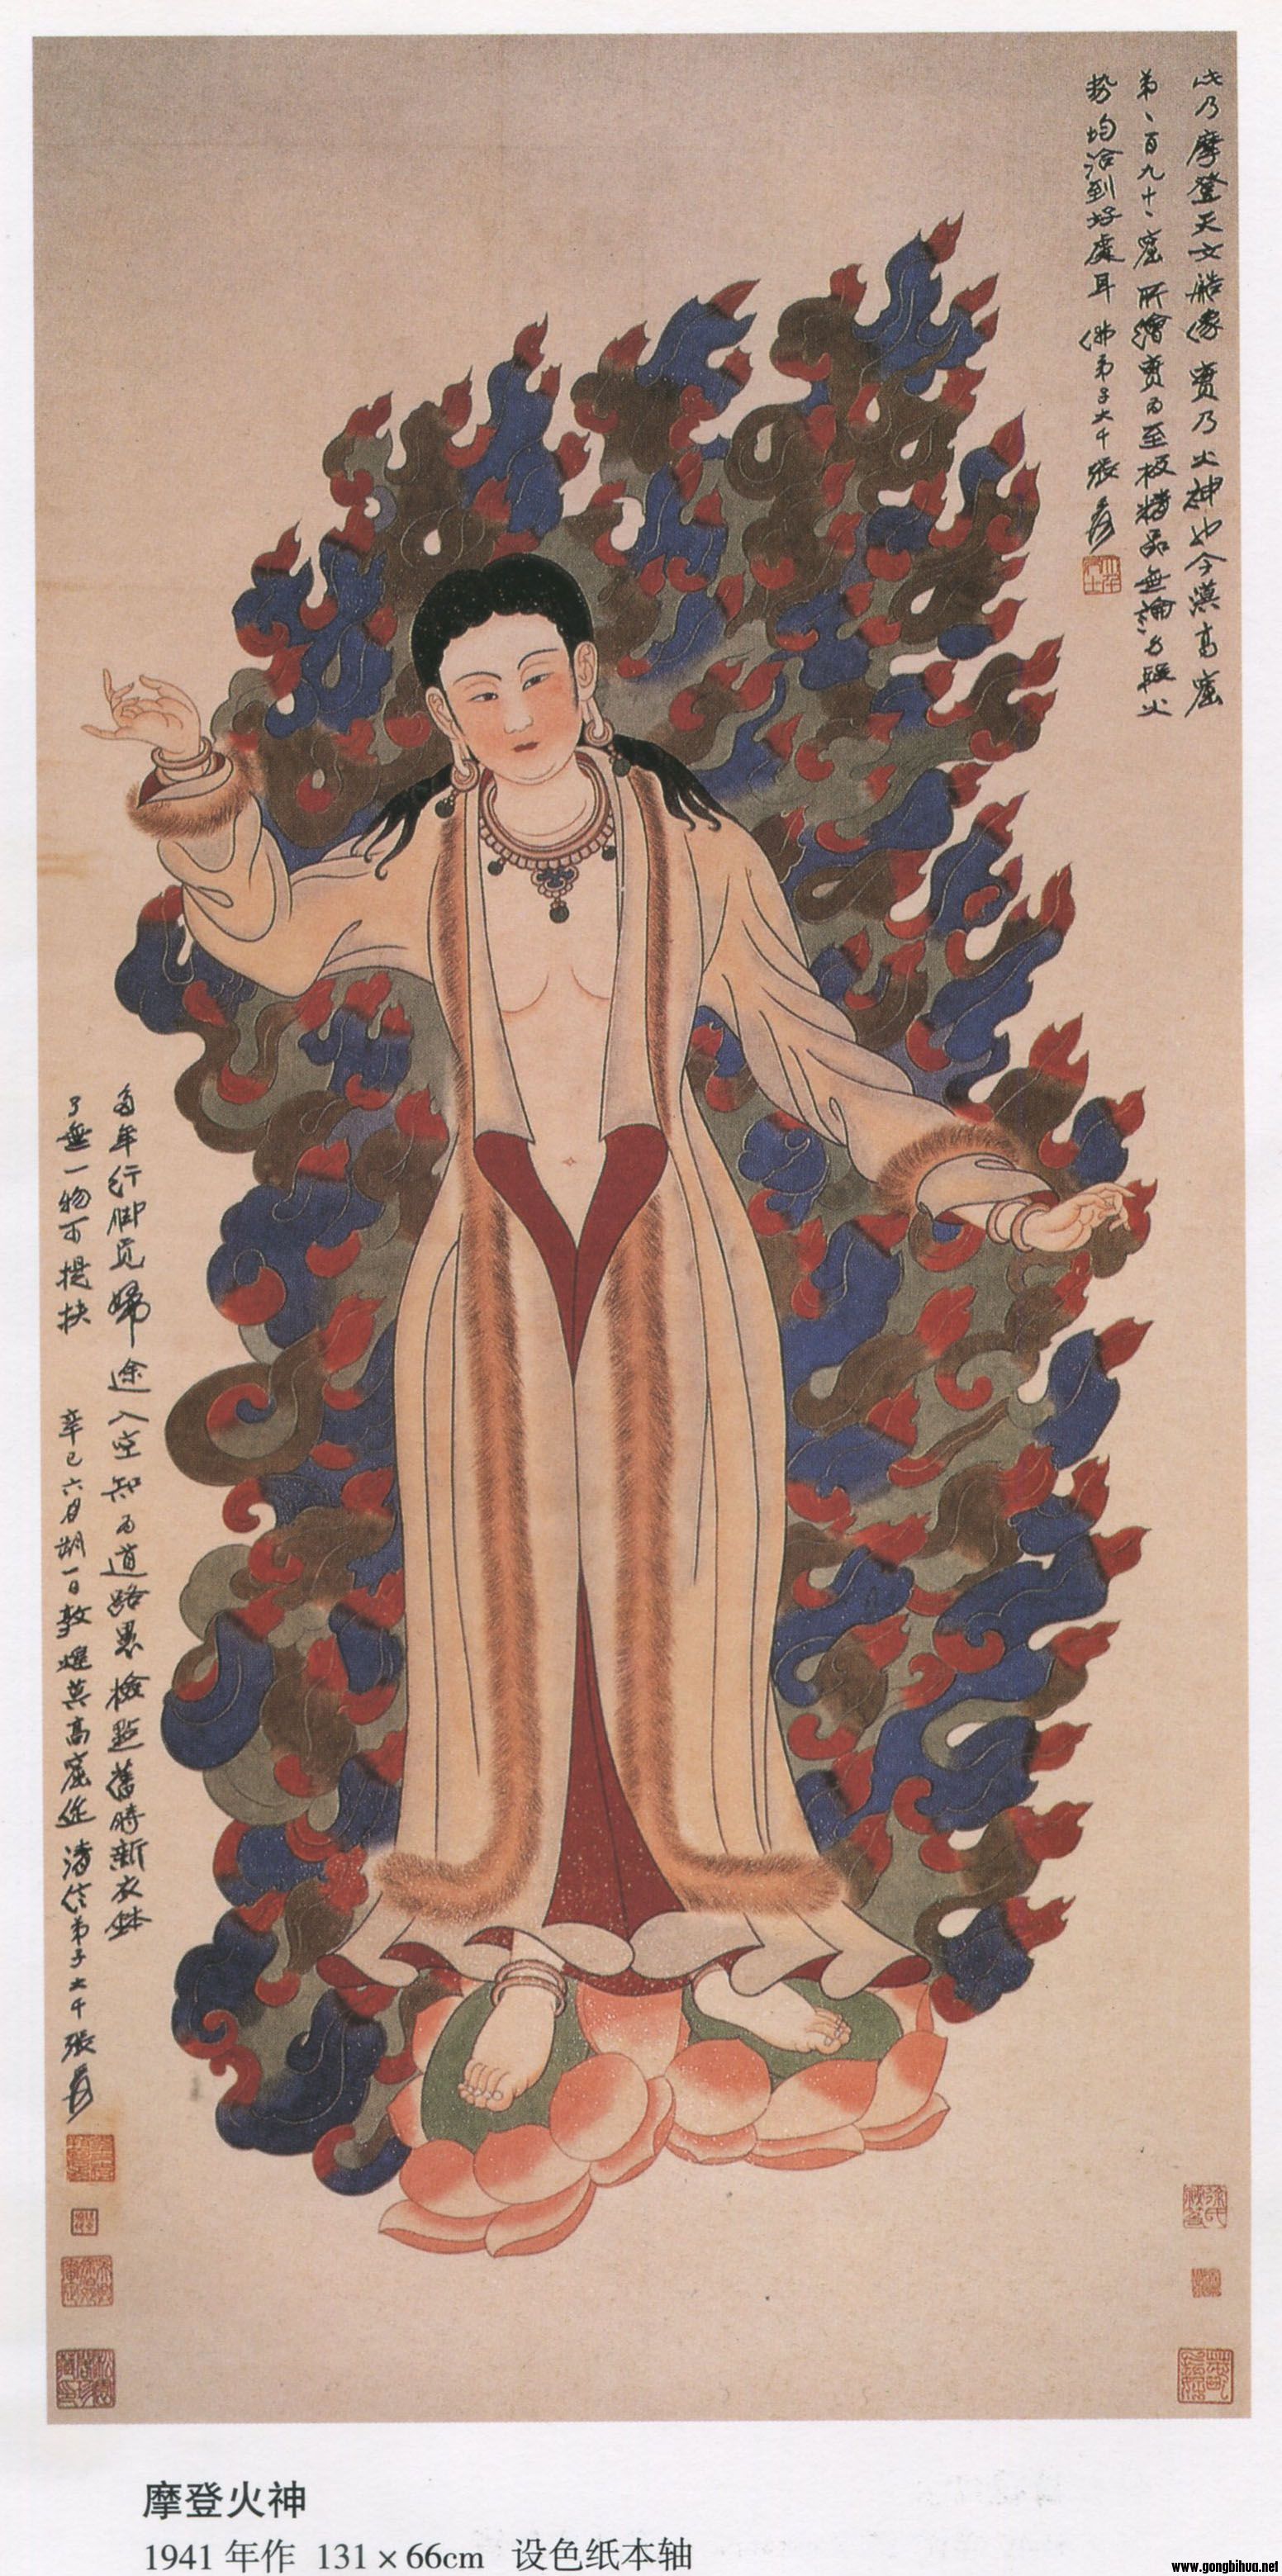 此乃摩登天女艁像實乃火神也今漠高窟
弟、百九十、窟所繪實為至極精品無論身段火
勢均洽到好處耳 佛弟子大千張爰
多年行腳覓歸途入空無為道路愚檢點舊時新衣鉢
了無一物可提扶 辛巳六月朔一日敦煌莫高窟作 清信弟子大千張爰
摩登火神
1941 年作 131×66cm 设色纸本轴
www.gongbihua.net